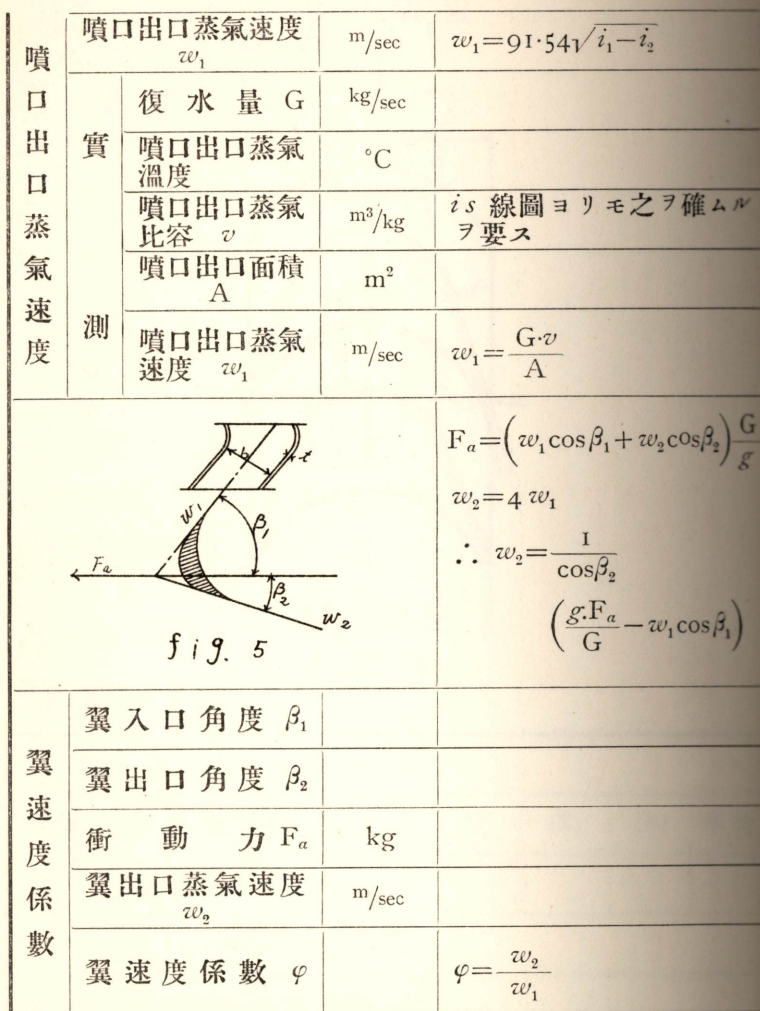 噴口出口蒸氣速度
噴口出口蒸氣速度
w₁
m/sec
w₁=91·54√i₁−i₂
實測
復水量 G
kg/sec
噴口出口蒸氣
溫度
°C
噴口出口蒸氣
比容 v
m³/kg
is 線圖ヨリモ之ヲ確ムル
ヲ要ス
噴口出口面積
A
m²
噴口出口蒸氣
速度 w₁
m/sec
w₁=G·v/A
b
t
w₁
β₁
Fa
β₂
w₂
fig. 5
Fₐ=(w₁cosβ₁+w₂cosβ₂)G/g
w₂=4 w₁
∴ w₂=1/cosβ₂
(g.Fₐ/G−w₁cosβ₁)
翼速度係數
翼入口角度 β₁
翼出口角度 β₂
衝動力 Fₐ
kg
翼出口蒸氣速度
w₂
m/sec
翼速度係數 φ
φ=w₂/w₁